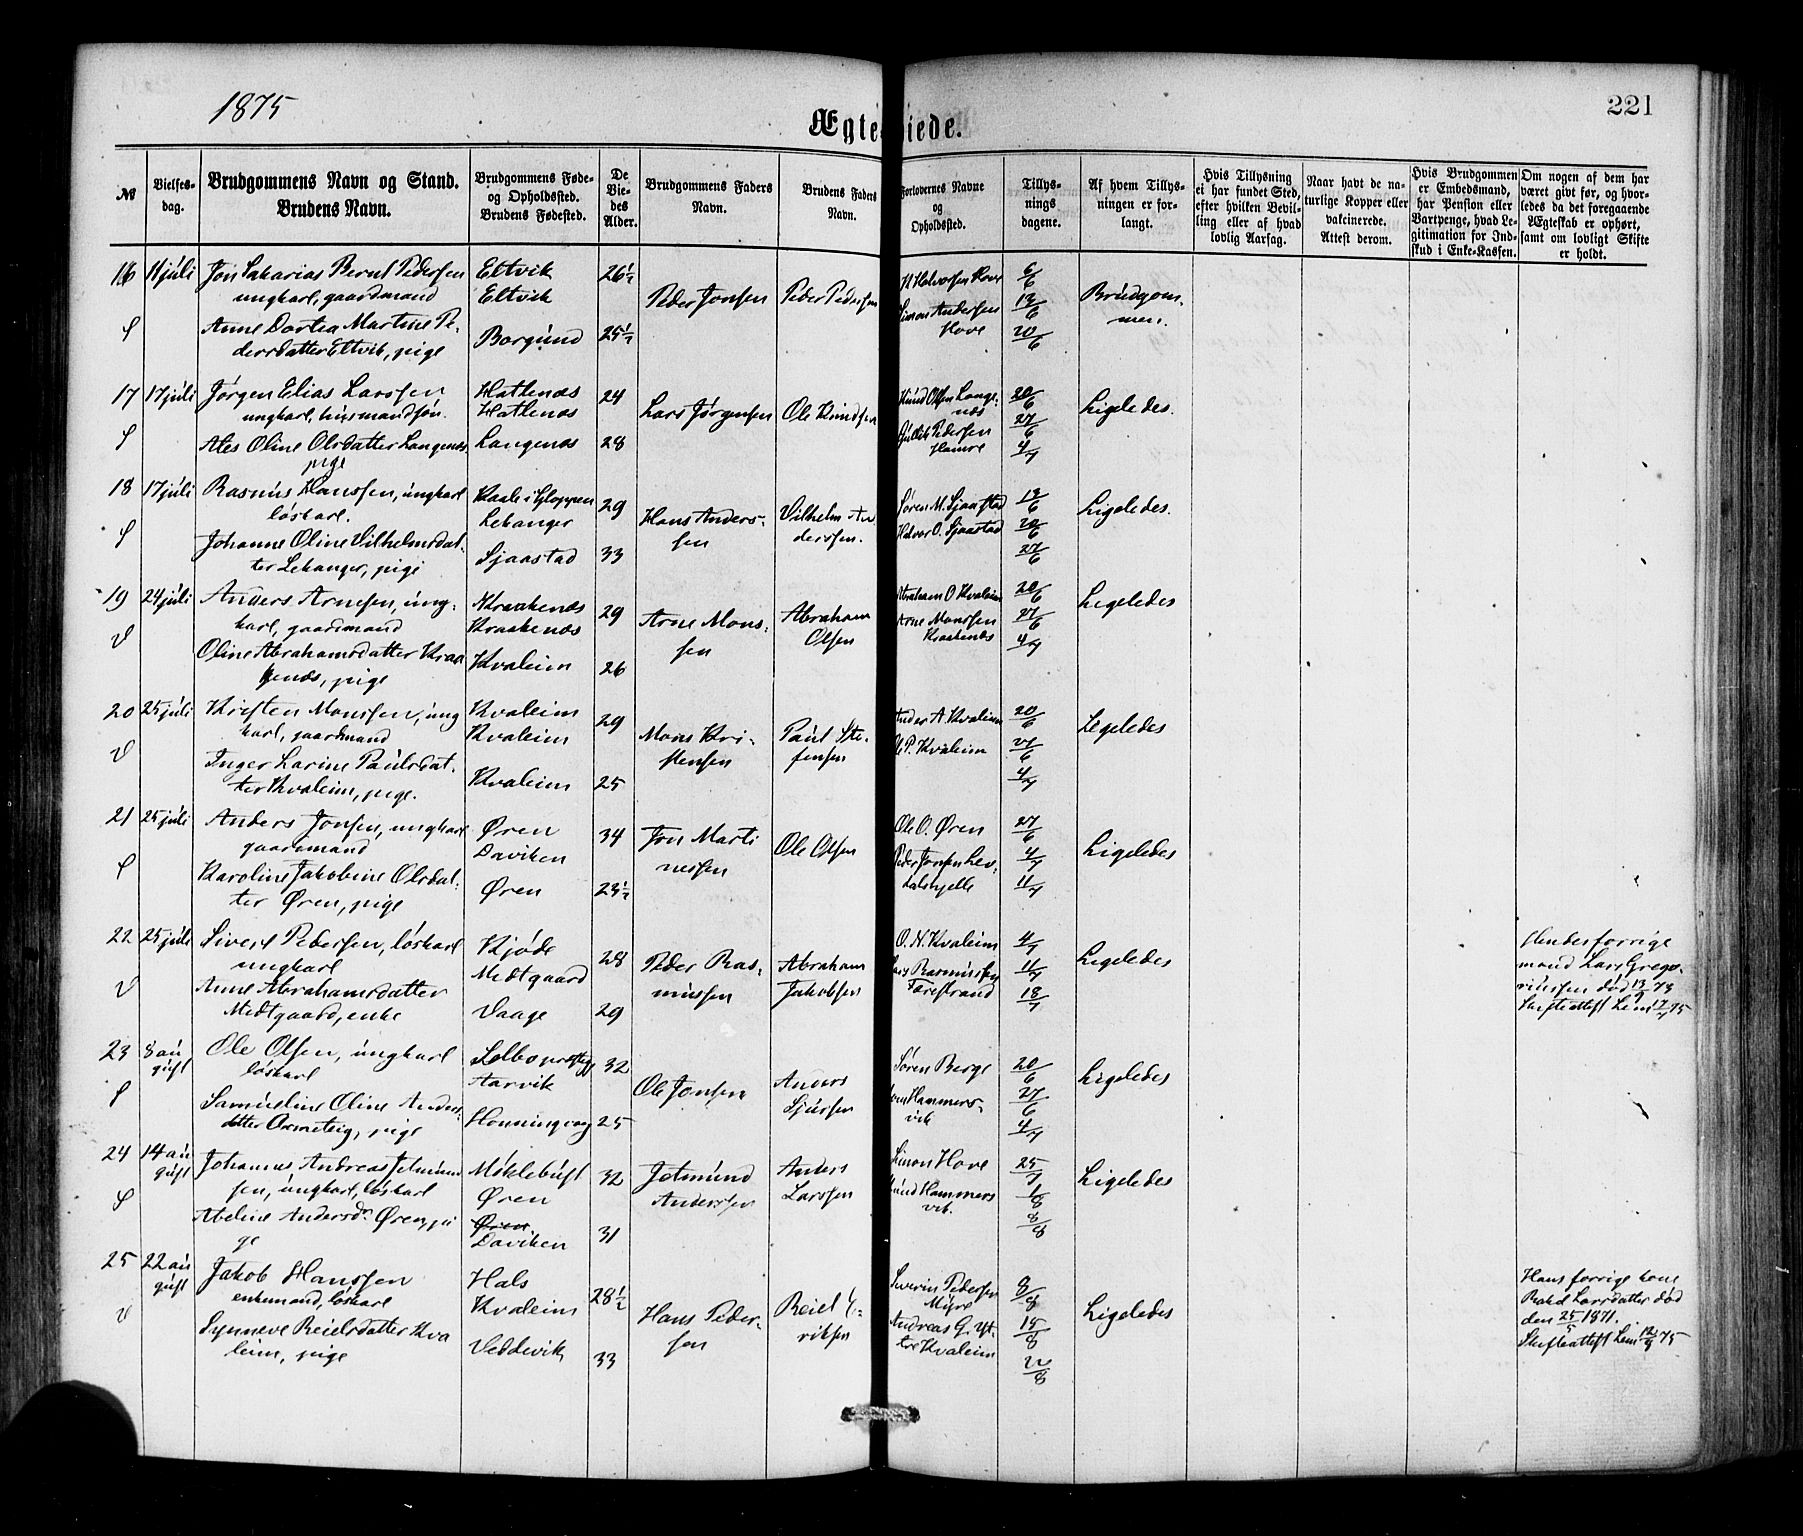 1875
221
Ægteviede.
№
Vielses-
dag.
Brudgommens Navn og Stand.
Brudens Navn.
Brudgommens Føde-
og Opholdssted.
Brudens Fødested.
De
Vie-
des
Alder.
Brudgommens Faders
Navn.
Brudens Faders
Navn.
Forlovernes Navne
og
Opholdssted.
Tillys-
nings
dagene.
Af hvem Tillys-
ningen er for-
langt.
Hvis Tillysning
ei har fundet Sted,
efter hvilken Bevil-
ling eller af hvad
lovlig Aarsag.
Naar havt de na-
turlige Kopper eller
vakcinerede.
Attest derom.
Hvis Brudgommen
er Embedsmand,
har Pension eller
Vartpenge, hvad Le-
gitimation for Ind-
skud i Enke-Kassen.
Om nogen af dem har
været gift før, og hvor-
ledes da det foregaaende
Ægteskab er ophørt,
samt om lovligt Skifte
er holdt.
16 11 juli Jon Sakarias Bernt Pedersen
ungkarl, gaardmand
Anne Dortea Martine Pe-
dersdatter Eltvik, pige
Eltvik
Eltvik
Borgund
26½
25½
Peder Jonsen
Peder Pedersen
Simon Andersen
Hove
6/6
13/6
20/6
Brudgom-
men.
17 17 juli Jørgen Elias Larssen
ungkarl, husmandsøn.
Ales Oline Olsdatter Langenæs
pige
Hatlenæs
Hatlenæs
Langenæs
24
28
Lars Jørgensen
Ole Knudsen
Knud Olsen Lange-
næs
Gullik Pedersen
Hamre
20/6
27/6
4/7
Ligeledes.
18 17 juli Rasmus Hanssen, ungkarl
løskarl.
Johanne Oline Vilhelmsdat-
ter Lekanger, pige
Raale i Gloppen
Lekanger
Sjaastad
29
33
Hans Anders-
sen
Vilhelm An
derssen.
Søren M. Sjaastad
Halvor O. Sjaastad
13/6
20/6
27/6
Ligeledes.
19 24 juli Anders Arnesen, ung-
karl, gaardmand
Oline Abrahamsdatter Kraa
kenæs, pige
Kraakenæs
Kraakenæs
Kvaleim
29
26
Arne Mons-
sen
Abraham
Olsen
Abraham O Kvaleim
Arne Monssen
Kraakenæs
20/6
27/6
4/7
Ligeledes
20 25 juli Kristen Monssen, ung
karl, gaardmand
Inger Larine Paulsdat-
ter Kvaleim, pige.
Kvaleim
Kvaleim
Kvaleim
29
25
Mons Kri-
stensen
Paul Ste-
fensen
Ander A. Kvaleim
Ole P. Kvaleim
20/6
27/6
4/7
Ligeledes
21 25 juli Anders Jonsen, ungkarl
gaardmand
Karoline Jakobine Olsdat-
ter Øren, pige
Øren
Daviken
Øren
34
23½
Jon Marti
nessen
Ole Olsen
Ole O. Øren
Peder Jonsen Lev-
dalshjelle
27/6
4/7
11/7
Ligeledes
22 25 juli Sivert Pedersen, løskarl
ungkarl
Anne Abrahamsdatter
Midtgaard, enke
Kjøde
Midtgaard
Vaage
28
29
Peder Ras-
mussen
Abraham
Jakobsen
O. N. Kvaleim
Lars Rasmussen
Farestrand
4/7
11/7
18/7
Ligeledes
Hendes forrige
mand Lars Grego-
riussen død 13/9 73
Skifteattest Lem 17/7 75
23 8 au
gust
Ole Olsen, ungkarl
løskarl
Samueline Oline Anders-
datter Ormeteig, pige
Selbo præstegj
Aarvik
Honningvaag
32
25
Ole Jonsen
Anders
Sjursen
Søren Berge
Hammers-
vik
20/6
27/6
4/7
Ligeledes
24 14 au
gust
Johannes Andreas Jetmund
sen, ungkarl, løskarl
Abeline Andersdr. Øren, pi
ge
Møklebust
Øren
Øren
Daviken
32
31
Jetmund
Anderssen
Anders
Larssen
Simon Hove
Knud Hammers
vik.
25/7
1/8
8/8
Ligeledes
25 22 au
gust
Jakob Hanssen
enkemand, løskarl
Synneve Reielsdatter Kva
leim, pige
Hals
Kvaleim
Veddevik
28½
33
Hans Peder-
sen
Reiel E-
riksen
Severin Pedersen
Myre
Andreas G. Yt-
tre Kvaleim
8/8
15/8
22/8
Ligeledes
Hans forrige kone
Rakel Larsdatter død
den 25/5 1871.
Skifteattest Lem 12/8 75